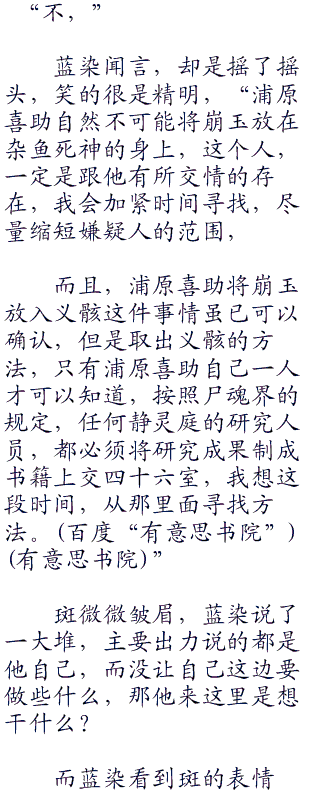 “不，”
蓝染闻言，却是摇了摇
头，笑的很是精明，“浦原
喜助自然不可能将崩玉放在
杂鱼死神的身上，这个人，
一定是跟他有所交情的存
在，我会加紧时间寻找，尽
量缩短嫌疑人的范围，
而且，浦原喜助将崩玉
放入义骸这件事情虽已可以
确认，但是取出义骸的方
法，只有浦原喜助自己一人
才可以知道，按照尸魂界的
规定，任何静灵庭的研究人
员，都必须将研究成果制成
书籍上交四十六室，我想这
段时间，从那里面寻找方
法。(百度“有意思书院”)
(有意思书院)”
斑微微皱眉，蓝染说了
一大堆，主要出力说的都是
他自己，而没让自己这边要
做些什么，那他来这里是想
干什么？
而蓝染看到斑的表情